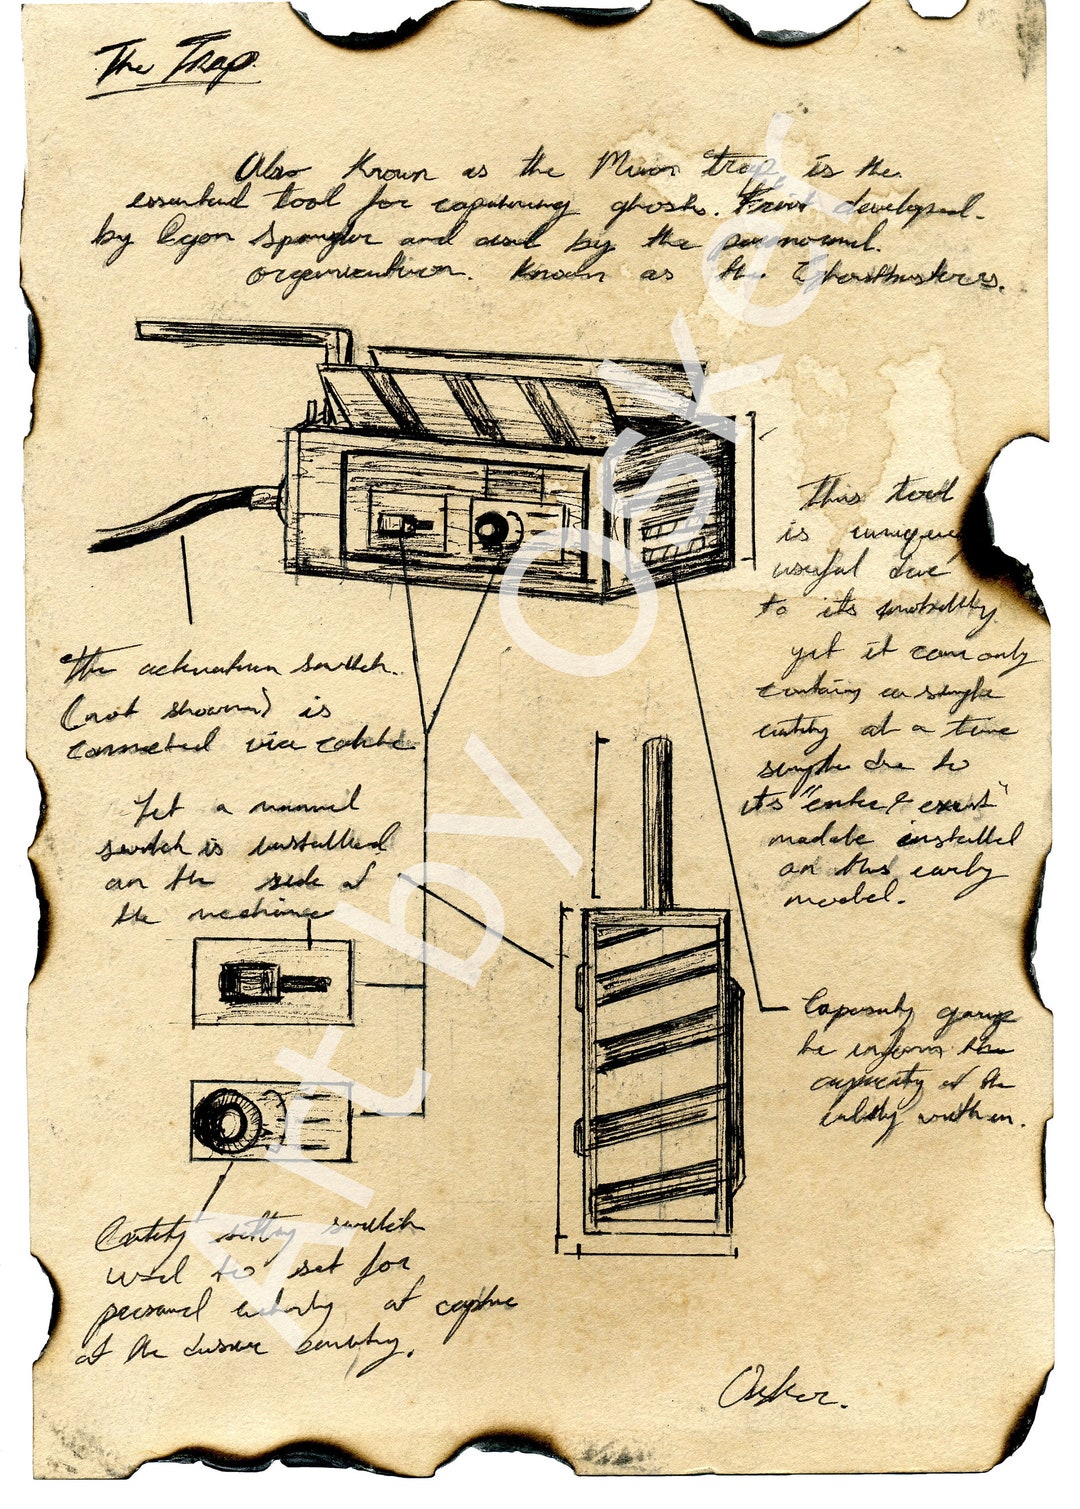 The Trap
Also Known as the Muon trap, is the
essential tool for capturing ghosts. First developed
by Egon Spengler and used by the paranormal
organization. Known as the Ghostbusters.
This tool
is unique
useful due
to its mobility
yet it can only
contain a single
entity at a time
simple due to
its "enter & exist"
module installed
on this early
model.
The activation switch.
(not shown) is
connected via cable
Yet a manual
switch is installed
on the side of
the machine
Capacity gauge
to inform the
capacity of the
entity within.
Entity setting switch
used to set for
personal at capture
at the
Osker.
Art by Osker